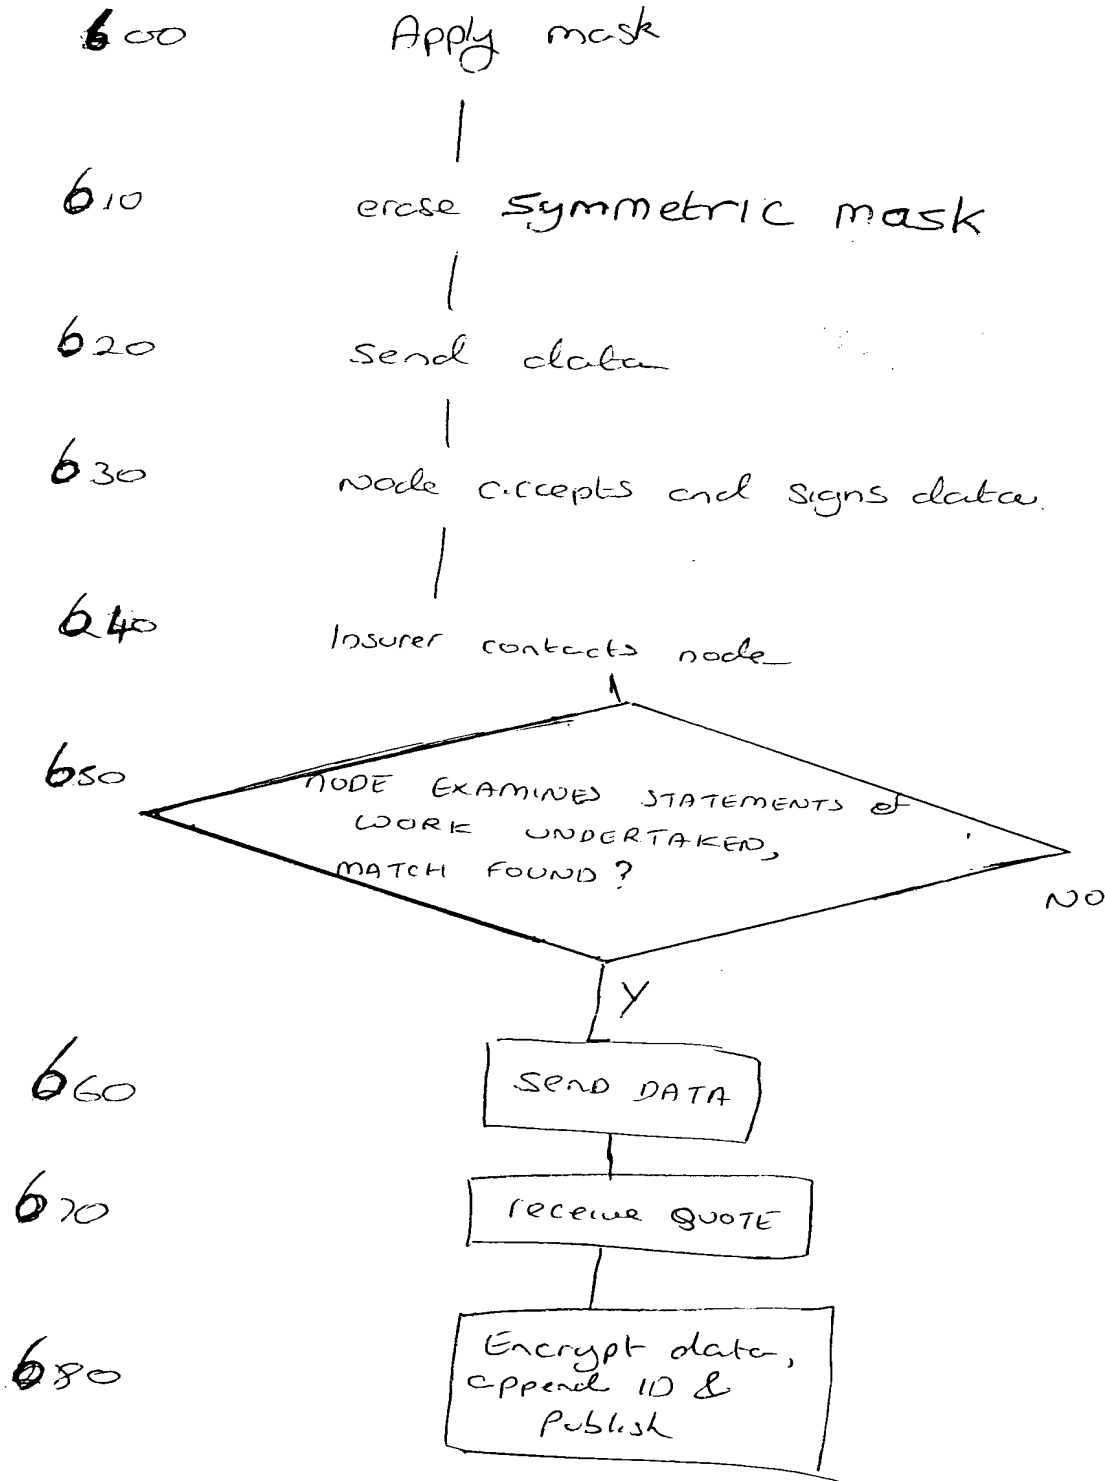 600 Apply mask
610 erase symmetric mask
620 send data
630 Node accepts and signs data.
640 Insurer contacts node
650 NODE EXAMINES STATEMENTS of
WORK UNDERTAKEN,
MATCH FOUND?
NO
Y
660 SEND DATA
670 receive QUOTE
680 Encrypt data,
append ID &
Publish